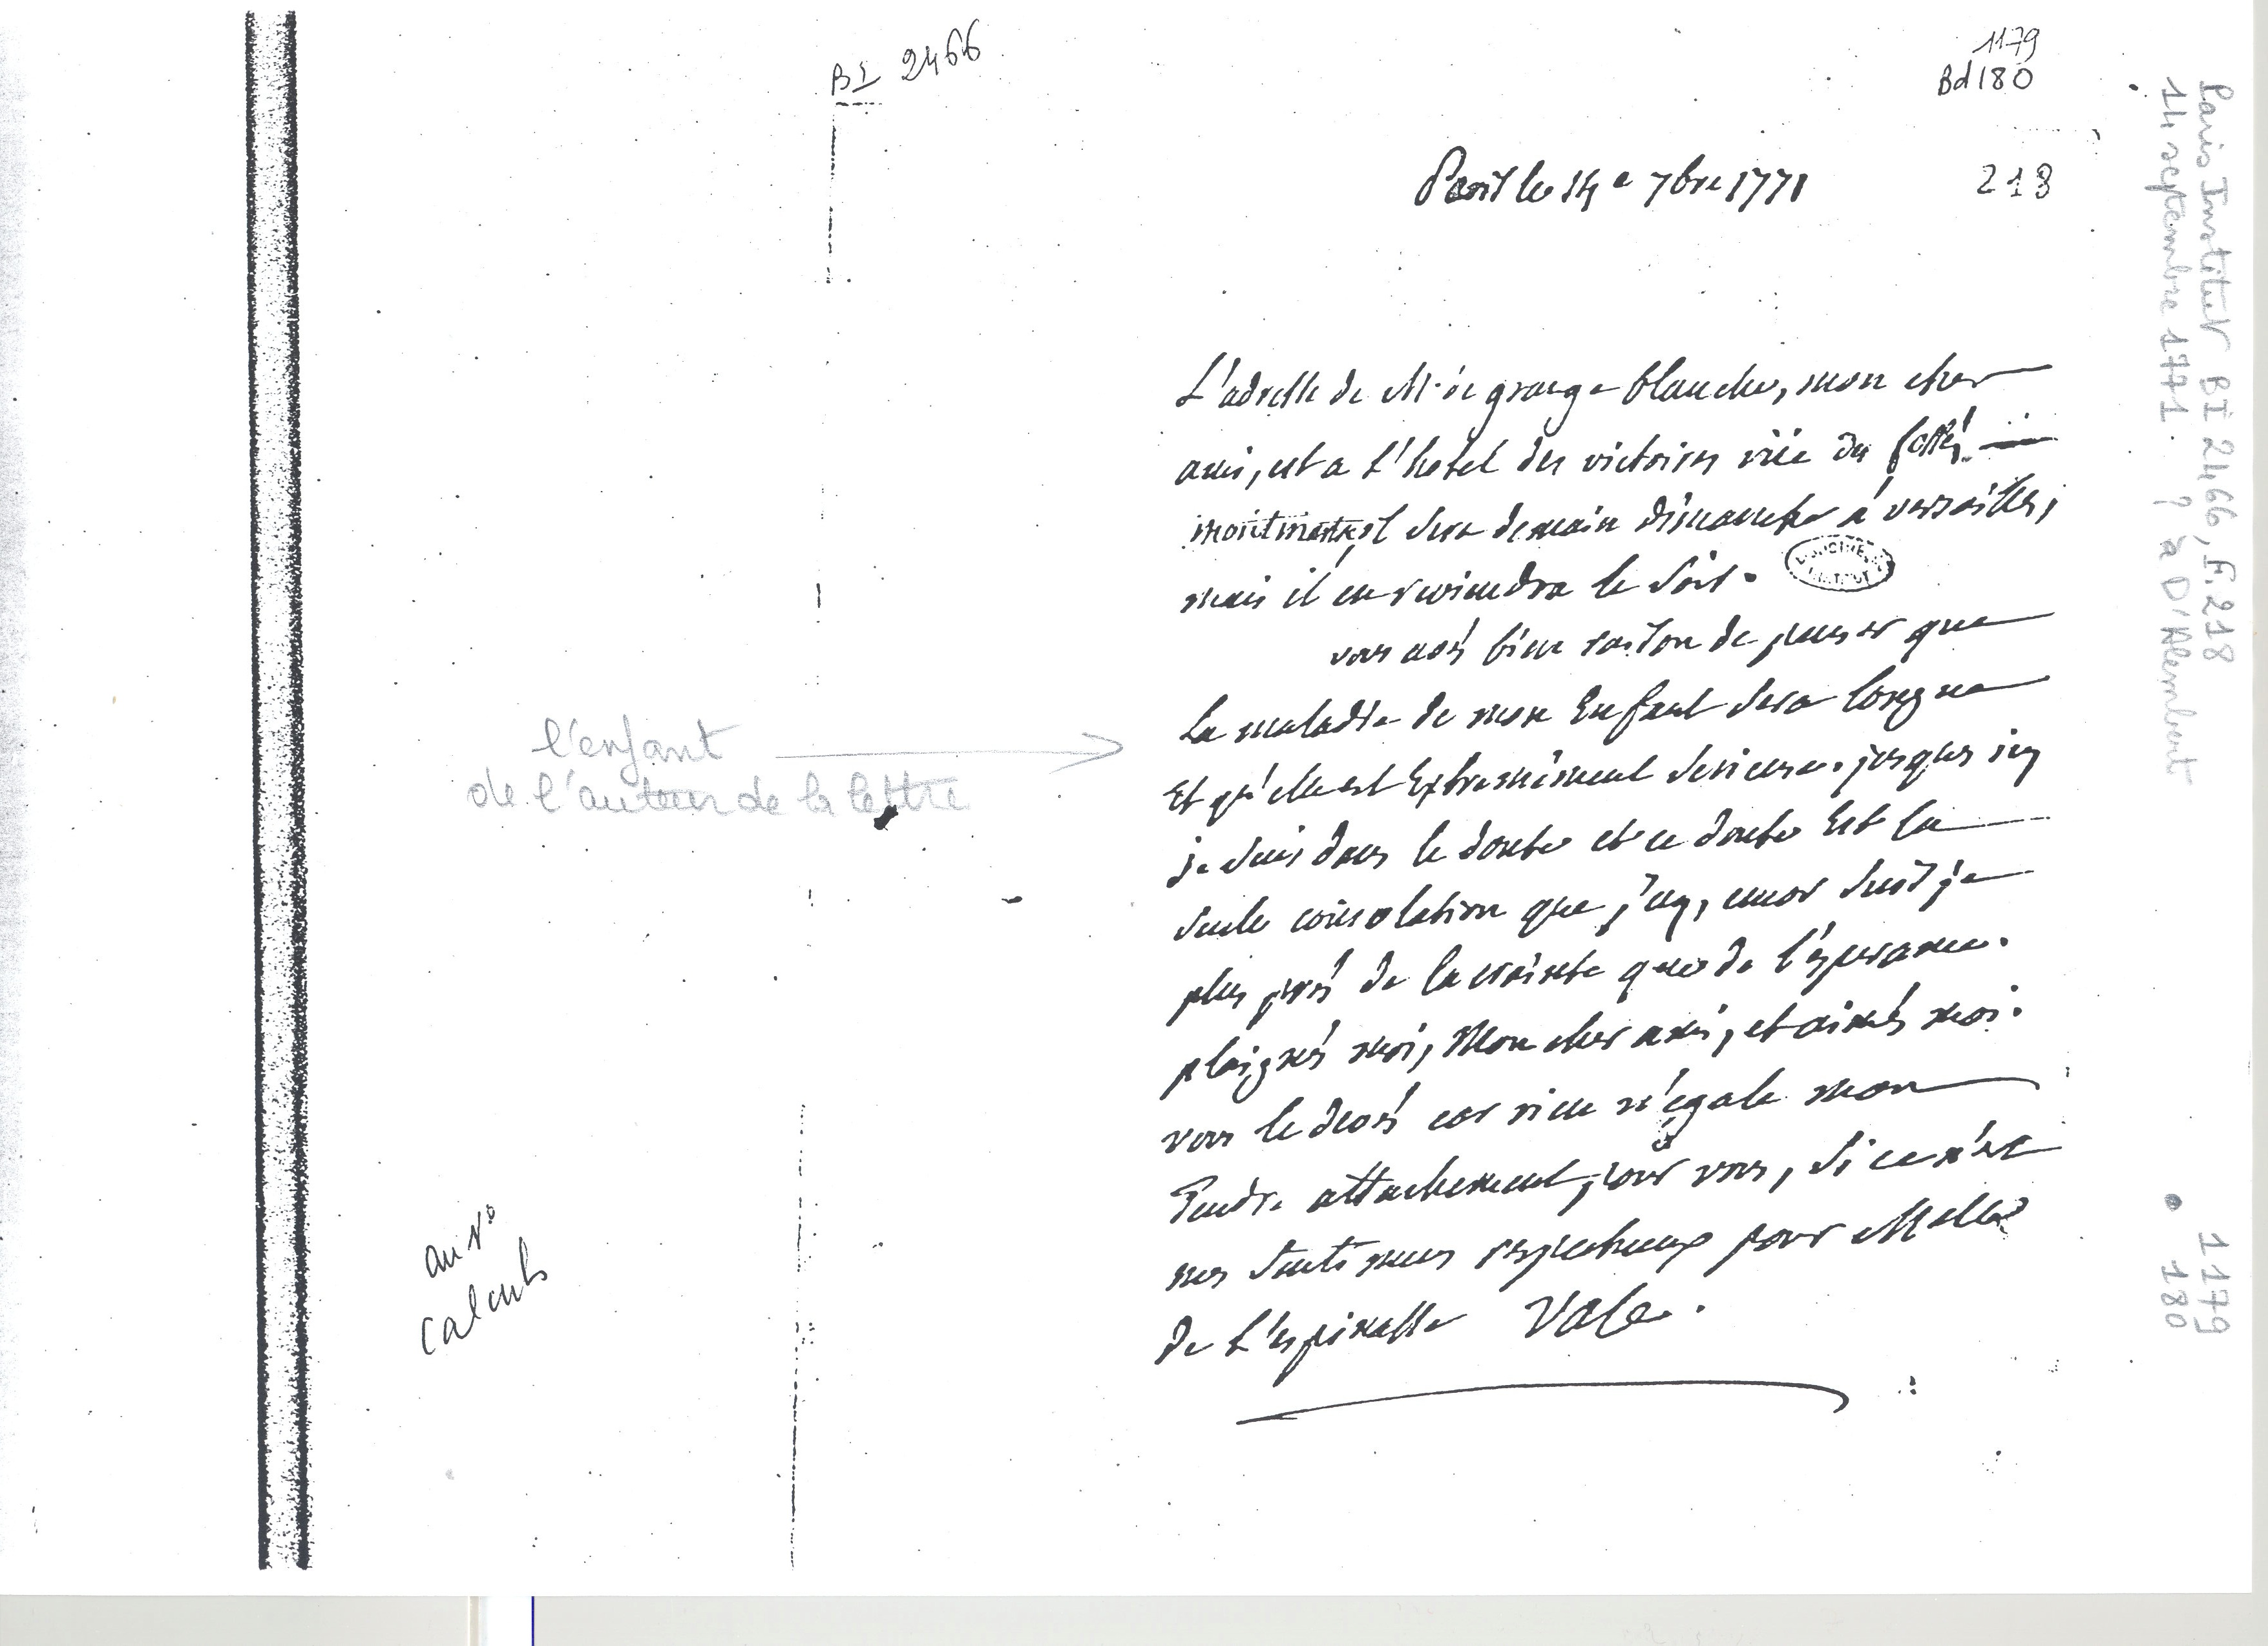 BI 2466
1179
Bd 180
218
Paris le 14e 7bre 1771
L'adresse de Mr de grange blanche, mon cher
ami, est a l'hotel des victoires rüe des fossés
montmartre, il sera demain dimanche a versailles,
mais il en reviendra le soir.
vous avés bien raison de penser que
La maladie de mon Enfant sera longue
Et qu'elle est Extremement serieuse. jusques icy
je suis dans le doute et ce doute Est la
seule consolation que j'ay, encor suis je
plus près de la crainte que de l'esperance.
plaignés moi, Mon cher ami, et aimés moi.
vous le devés car rien n'égale mon
Tendre attachement pour vous, si ce n'est
mes sentimens respectueux pour Melle
de L'espinasse Vale.
l'enfant
de l'auteur de la lettre
au vo
calculs
Paris Institut BI 2466, F. 218
14 septembre 1771. ? à D'Alembert
1179
180